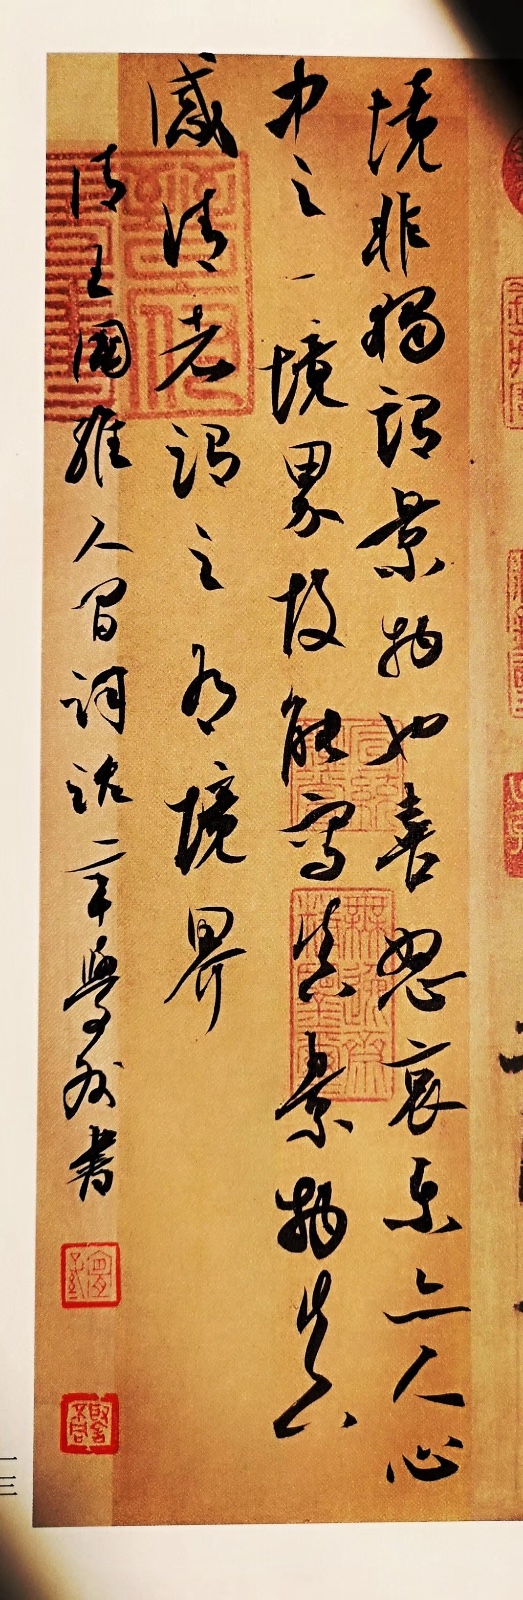 境非獨謂景物也喜怒哀樂亦人心
中之一境界故能寫真景物真
感情者謂之有境界
清王國維人間詞話一章學書
一三